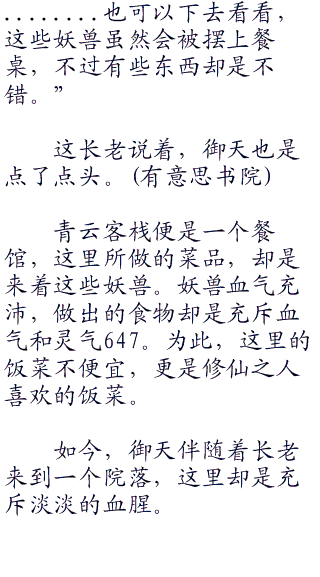 ........也可以下去看看，
这些妖兽虽然会被摆上餐
桌，不过有些东西却是不
错。”
这长老说着，御天也是
点了点头。(有意思书院)
青云客栈便是一个餐
馆，这里所做的菜品，却是
来着这些妖兽。妖兽血气充
沛，做出的食物却是充斥血
气和灵气647。为此，这里的
饭菜不便宜，更是修仙之人
喜欢的饭菜。
如今，御天伴随着长老
来到一个院落，这里却是充
斥淡淡的血腥。